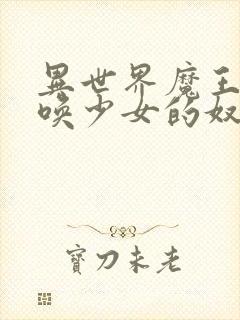 異世界魔王
喚少女的奴
寶刀未老